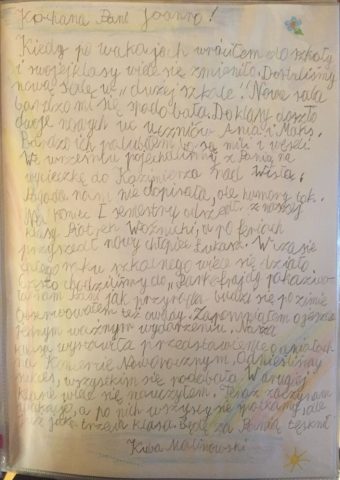 Kochana Pani Joanno!
Kiedy po wakacjach wróciłem do szkoły
i swojej klasy wiele się zmieniło. Dostaliśmy
nową salę w „dużej szkole”! Nowa sala
bardzo mi się spodobała. Do klasy doszło
dwoje nowych uczniów Ania i Maks.
Bardzo ich polubiłem bo są mili i weseli.
We wrześniu pojechaliśmy z Panią na
wycieczkę do Kazimierza nad Wisłą.
Pogoda nam nie dopisała, ale humory tak.
Na koniec I semestru odszedł z naszej
klasy Piotrek Woźnicki, a po feriach
przyszedł nowy chłopiec Łukasz. W czasie
całego roku szkolnego wiele się działo.
Często chodziliśmy do pokazywa-
ła nam Pani jak przyroda budzi się po zimie
obserwowałem też owady. Zapomniałem o jeszcze
jednym ważnym wydarzeniu. Nasza
klasa wystawiła przedstawienie o aniołach
na Koncercie Noworocznym. Odnieśliśmy
sukces, wszystkim się podobało. W drugiej
klasie wiele się nauczyłem. Teraz zaczynam
wakacje, a po nich wszyscy się spotkamy, ale
już jako trzecia klasa. Będę za Panią tęsknił
Kuba Malinowski